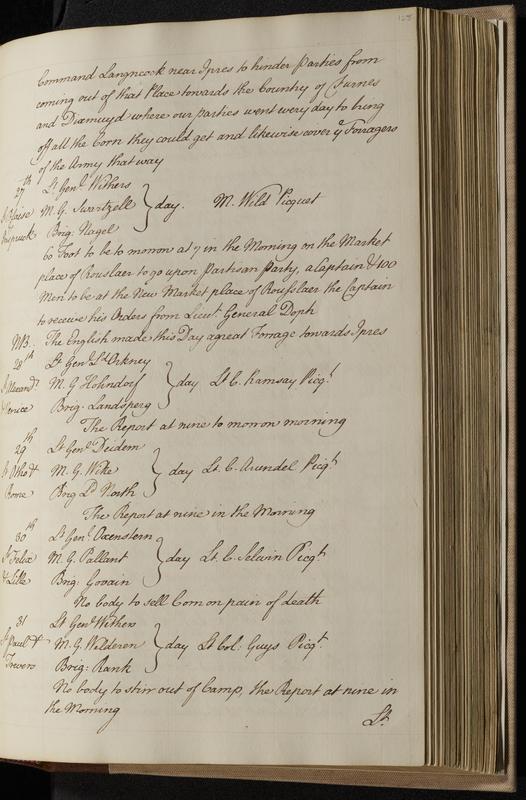 125
Command Langncook near Ipres to hinder Parties from
coming out of that Place towards the Country of Furnes
and Dixmuyd where our parties went every day to bring
off all the Corn they could get and likewise cover ye Forragers
of the Army that way
27th Lt Genl Withers
Blaise M. G. Swartzell } day. M. Wild Picquet
Brig: Nagel
60 Foot to be to morrow at 7 in the Morning on the Market
place of Rouslaer to go upon Partisan Party, a Captain & 100
Men to be at the New Market place of Rousslaer the Captain
to receive his Orders from Lieut General Doph
NB. The English made this Day a great Forrage towards Ipres
28th Lt Genl Ld Orkney
M. G. Hohndorf } day Lt C. Ramsay Picqt
& Venice Brig. Landsperg
The Report at nine to morrow morning
29th Lt Genl Deidem
St Otho & M. G. Wike } day Lt. C. Arundel Picqt
Rome Brig Ld North
The Report at nine in the Morning
30th Lt Genl Oxenstern
St Felix M. G. Pallant } day Lt. C. Selwin Picqt
& Lille Brig: Govain
No body to sell Corn on pain of death
31 Lt Genl Withers
St Paul & M. G. Welderen } day Lt Col: Guys Picqt
Trevers Brig: Rank
No body to stirr out of Camp, the Report at nine in
the Morning
Lt